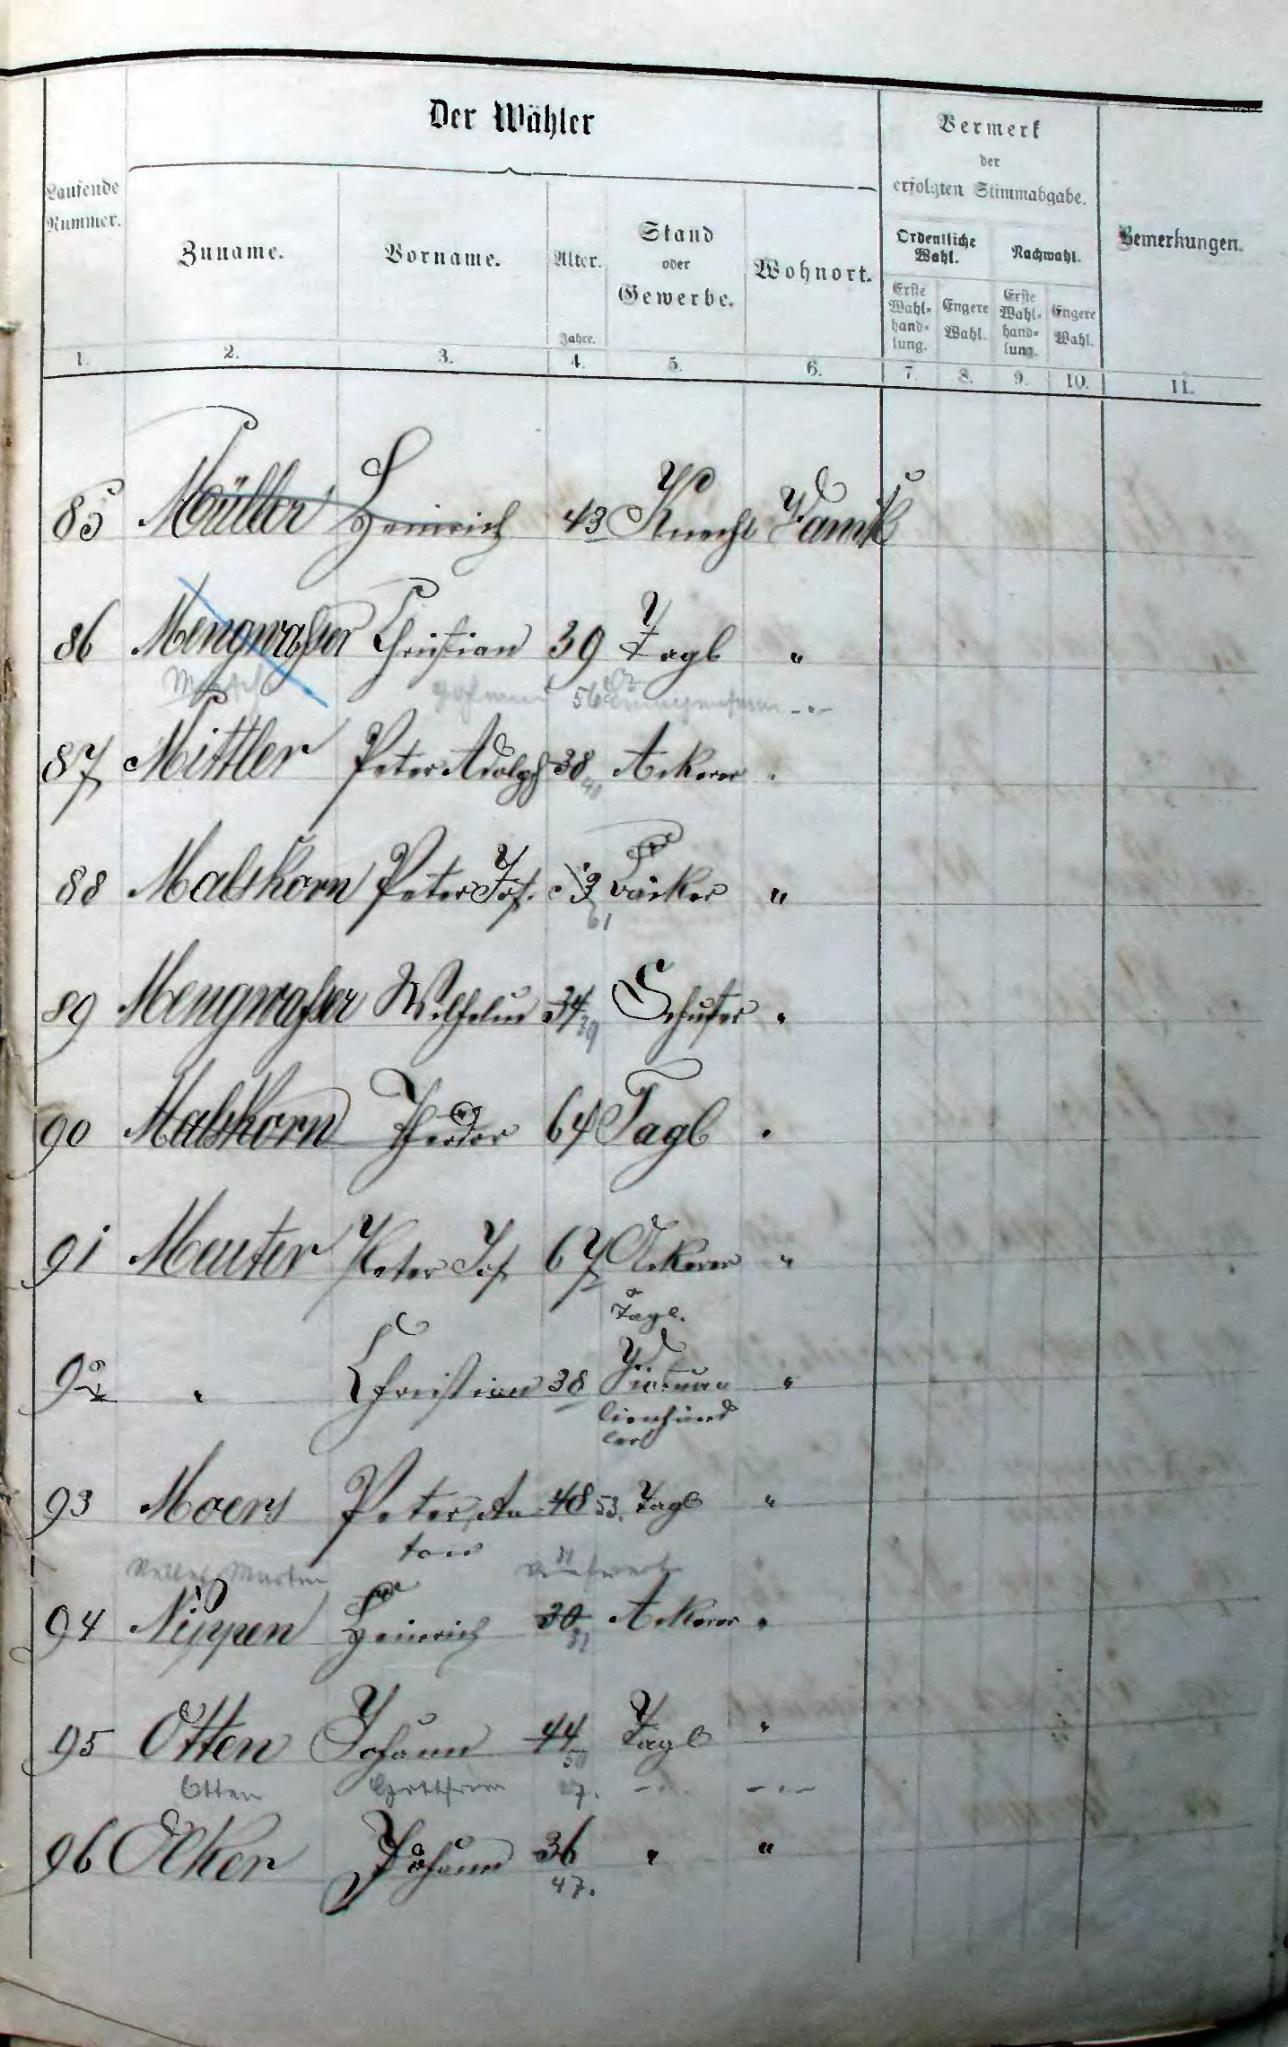 Der Wähler
Vermerk
der
erfolgten Stimmabgabe.
Laufende
Nummer.
Zuname.
Vorname.
Alter.
Jahre.
Stand
oder
Gewerbe.
Wohnort.
Ordentliche
Wahl.
Nachwahl.
Erste
Wahl-
hand-
lung.
Engere
Wahl.
Erste
Wahl-
hand-
lung.
Engere
Wahl.
Bemerkungen.
1. 2. 3. 4. 5. 6. 7. 8. 9. 10. 11.
85 Müller Heinrich 43 Knecht
86 Mengwaßer Christian 39 Tagl "
56
87 Mittler Peter Adolph 38 Ackerer "
88 Malzkorn Peter Jos. Bäcker "
61
89 Mengwaßer Wilhelm 34 Schuster "
39
90 Malzkorn Theodor 64 Tagl "
91 Meuter Peter Jos 67 Ackerer "
Tagl.
92 " Christian 38 "
93 Moers Peter An 48 53. Tagl "
ton
Martin
94 Nippen Heinrich 30 Ackerer "
95 Otten Johann 44 Tagl "
50
Otten Gottfried 27.
96 Ocker Johann 36 " "
47.